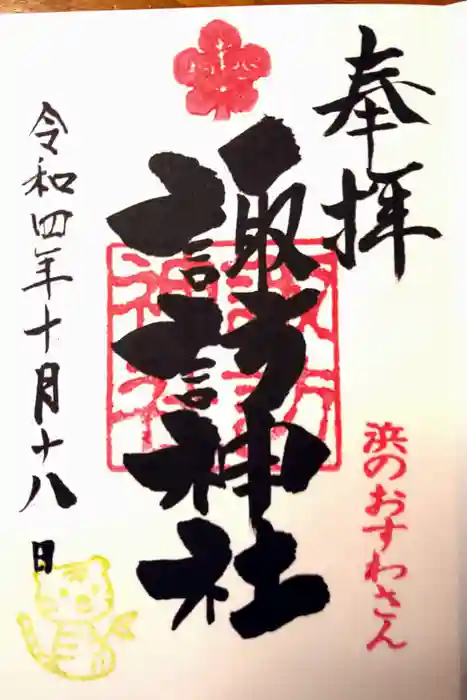 奉拝
浜のおすわさん
諏訪神社
諏訪神社
令和四年十月十八日